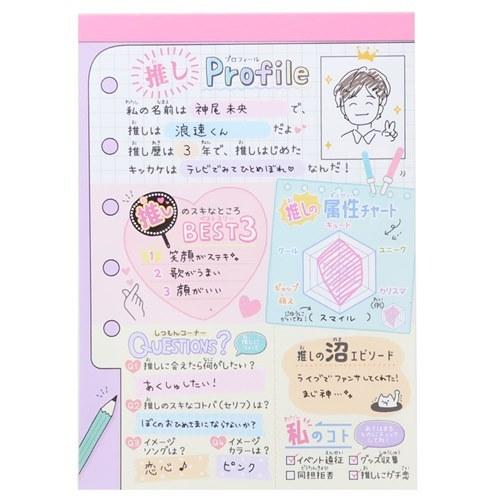 推し
プロフィール
Profile
私の名前は 神尾 未央 で、
推しは 浪速くん だよ
推し歴は 3 年で、推しはじめた
キッカケは テレビでみてひとめぼれ♡ なんだ!
推しのスキなところ
BEST3
1 笑顔がステキ
2 歌がうまい
3 顔がいい
推しの属性チャート
キュート
クール
ユニーク
ギャップ萌え
カリスマ
(スマイル)
しつもんコーナー
QUESTIONS?
Q1 推しに会えたら何がしたい?
あくしゅしたい!
Q2 推しのスキなコトバ(セリフ)は?
ぼくのおひめさまにならないか?
Q3 イメージソングは?
恋心♪
Q4 イメージカラーは?
ピンク
推しの沼エピソード
ライブでファンサしてくれた!
まじ神…
私のコト
あてはまるものにチェックしてね!
イベント遠征
グッズ収集
同担拒否
推しにガチ恋